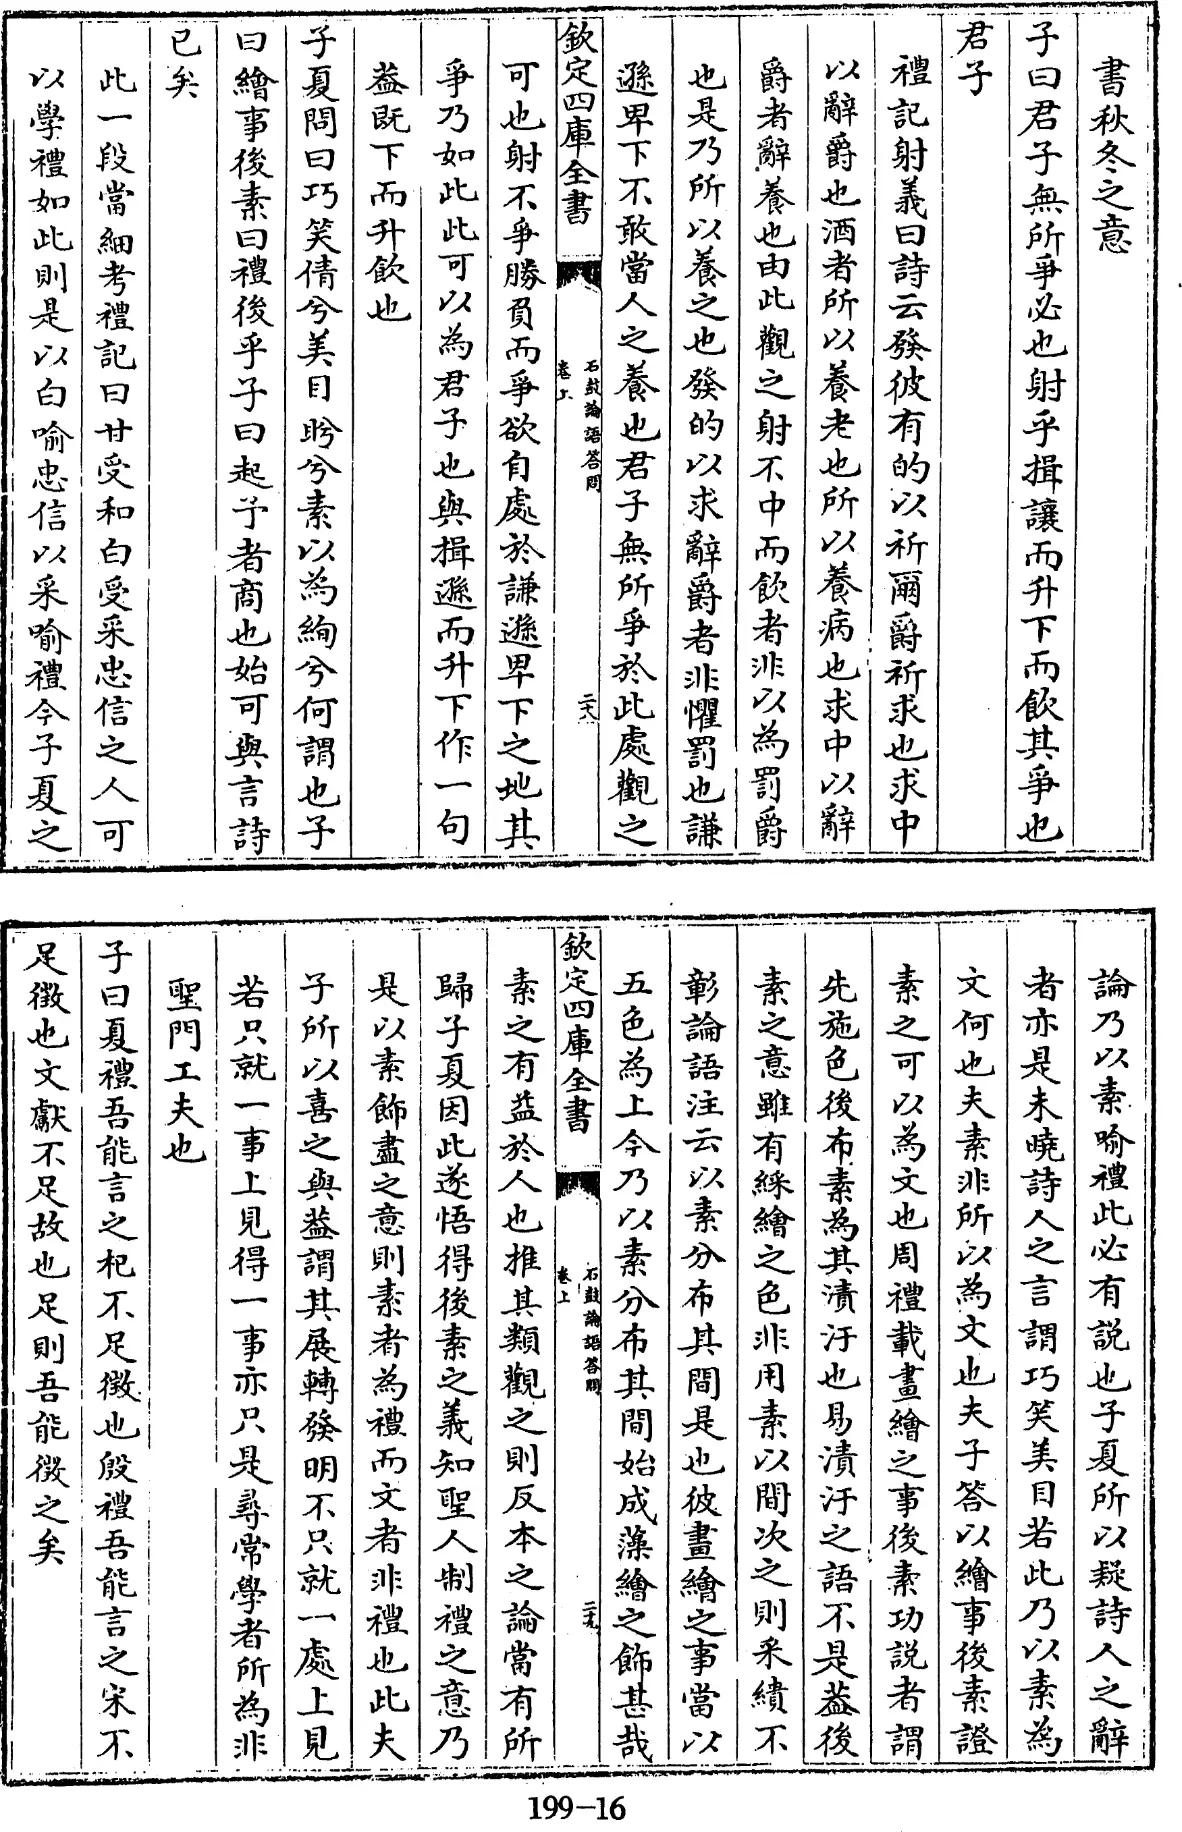 書秋冬之意
子曰君子無所爭必也射乎揖讓而升下而飲其爭也
君子
禮記射義曰詩云發彼有的以祈爾爵祈求也求中
以辭爵也酒者所以養老也所以養病也求中以辭
爵者辭養也由此觀之射不中而飲者非以為罰爵
也是乃所以養之也發的以求辭爵者非懼罰也謙
遜卑下不敢當人之養也君子無所爭於此處觀之
欽定四庫全書
石鼓論語答問
卷上
二十八
可也射不爭勝負而爭欲自處於謙遜卑下之地其
爭乃如此此可以為君子也與揖遜而升下作一句
葢既下而升飲也
子夏問曰巧笑倩兮美目盻兮素以為絢兮何謂也子
曰繪事後素曰禮後乎子曰起予者商也始可與言詩
已矣
此一段當細考禮記曰甘受和白受采忠信之人可
以學禮如此則是以白喻忠信以采喻禮今子夏之
論乃以素喻禮此必有説也子夏所以疑詩人之辭
者亦是未曉詩人之言謂巧笑美目若此乃以素為
文何也夫素非所以為文也夫子答以繪事後素證
素之可以為文也周禮載畫繪之事後素功説者謂
先施色後布素為其漬汙也易漬汙之語不是葢後
素之意雖有綵繪之色非用素以間次之則采繢不
彰論語注云以素分布其間是也彼畫繪之事當以
五色為上今乃以素分布其間始成藻繪之飾甚哉
欽定四庫全書
石鼓論語答問
卷上
二十九
素之有益於人也推其類觀之則反本之論當有所
歸子夏因此遂悟得後素之義知聖人制禮之意乃
是以素飾盡之意則素者為禮而文者非禮也此夫
子所以喜之與葢謂其展轉發明不只就一處上見
若只就一事上見得一事亦只是尋常學者所為非
聖門工夫也
子曰夏禮吾能言之杞不足徵也殷禮吾能言之宋不
足徵也文獻不足故也足則吾能徵之矣
199-16